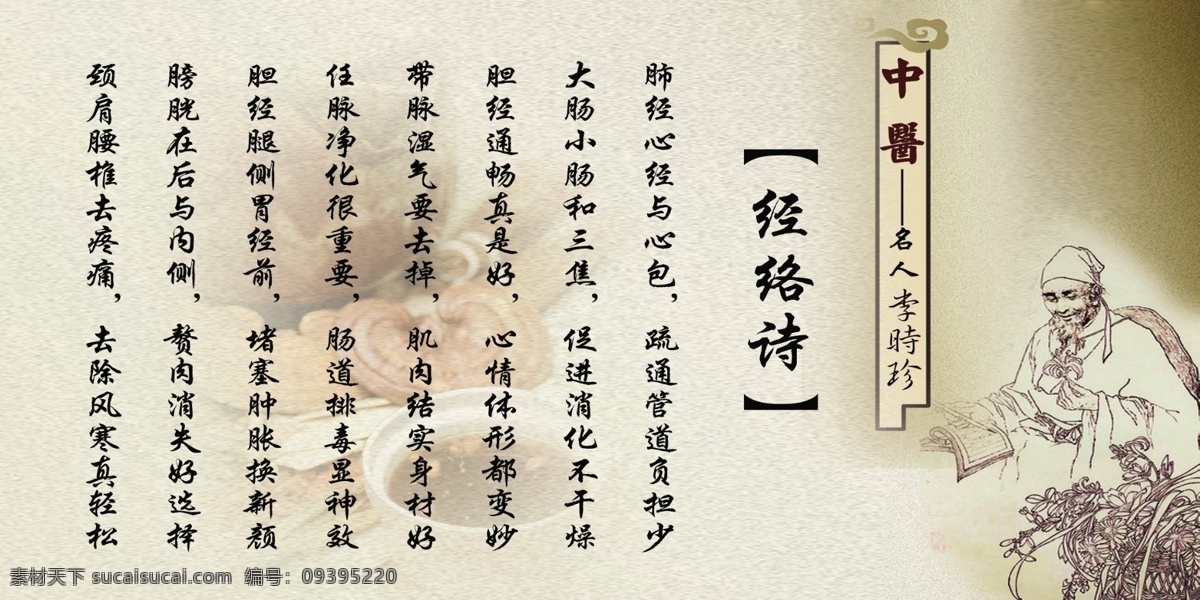 中醫——名人李時珍
【经络诗】
肺经心经与心包，疏通管道负担少
大肠小肠和三焦，促进消化不干燥
胆经通畅真是好，心情体形都变妙
带脉湿气要去掉，肌肉结实身材好
任脉净化很重要，肠道排毒显神效
胆经腿侧胃经前，堵塞肿胀换新颜
膀胱在后与内侧，赘肉消失好选择
颈肩腰椎去疼痛，去除风寒真轻松
素材天下 sucaisucai.com 编号：09395220